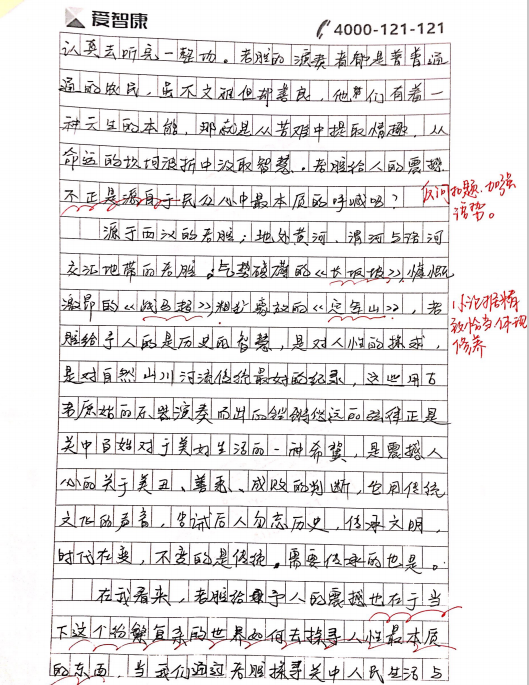 爱智康
4000-121-121
认真去听完一整功。老腔的演奏者都是普普通
通的农民，虽不文雅但却善良，他们有着一
种天生的本能，那就是从苦难中提取情趣，从
命运的坎坷波折中汲取智慧。老腔给人的震撼
不正是源自于民众心中最本质的呼喊吗？
反问扣题，加强
语势。
源于西汉的老腔；地处黄河，渭河与洛河
交汇地带的老腔。气势磅礴的《长坂坡》，慷慨
激昂的《战马超》，粗犷豪放的《定军山》，老
腔给予人的是历史的智慧，是对人性的探求，
是对自然山川河流传统最好的纪录，这些用古
老原始的乐器演奏而出的铿锵悠远的旋律正是
关中百姓对于美好生活的一种希冀，是震撼人
心的关于美丑、善恶、成败的判断，它用传统
文化的声音，告诫后人勿忘历史，传承文明，
时代在变，不变的是传统。需要传承的也是。
论据精
致恰当体现
修养
在我看来，老腔给予人的震撼也在于当
下这个纷繁复杂的世界如何去探寻人性最本质
的东西，当我们通过老腔探寻关中人民生活与